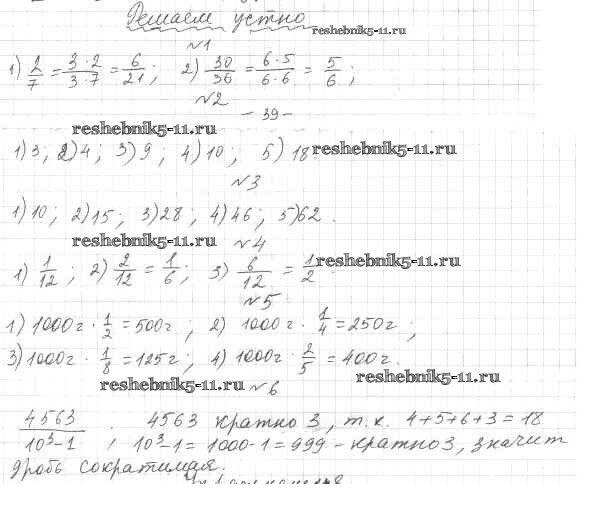 Решаем устно reshebnik5-11.ru
№1
1) 2/7 = 3·2/3·7 = 6/21; 2) 30/36 = 6·5/6·6 = 5/6;
№2
- 39 -
reshebnik5-11.ru
1) 3; 2) 4; 3) 9; 4) 10; 5) 18. reshebnik5-11.ru
№3
1) 10; 2) 15; 3) 28; 4) 46; 5) 62.
reshebnik5-11.ru №4
1) 1/12; 2) 2/12 = 1/6; 3) 6/12 = 1/2. reshebnik5-11.ru
№5
1) 1000г · 1/2 = 500г; 2) 1000г · 1/4 = 250г;
3) 1000г · 1/8 = 125г; 4) 1000г · 2/5 = 400г.
reshebnik5-11.ru №6 reshebnik5-11.ru
4563/10³-1. 4563 кратно 3, т.к. 4+5+6+3=18
, 10³-1=1000-1=999 - кратно 3, значит
дробь сократимая.